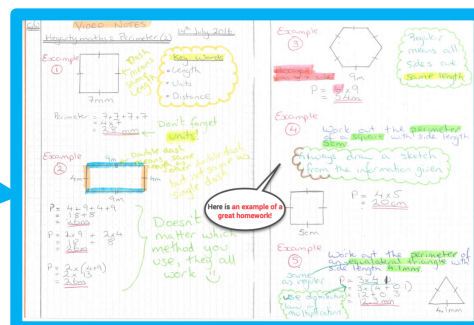 VIDEO NOTES
Hegartymaths : Perimeter (2)
14th July 2016
Example
①
7mm
Dash
means
same
length
Key Words
• Length
• Units
• Distance
Perimeter = 7+7+7+7
= 4×7
= 28 mm
Don't forget
units!
Example
②
9m
4m
4m
9m
Double dash
double dash
but not same as
single dash
P = 4+9+4+9
= 18+8
= 26m
P = 2×9 + 2×4
= 18 + 8
= 26m
P = 2×(4+9)
= 2×13
= 26m
Doesn't
matter which
method you
use, they all
work
Here is an example of a
great homework!
Example
③
9m
Regular
means all
sides are
same length
P = 6×9
= 54m
Example
④
Work out the perimeter
of a square with side length
5cm
Always draw a sketch
from the information given
5cm
P = 4×5
= 20cm
Example
⑤
Work out the perimeter of
an equilateral triangle with
side length 4.1mm
same
as regular
use distributive
law of
multiplication
P = 3×4.1
= 3×(4+0.1)
= 12+0.3
4.1mm